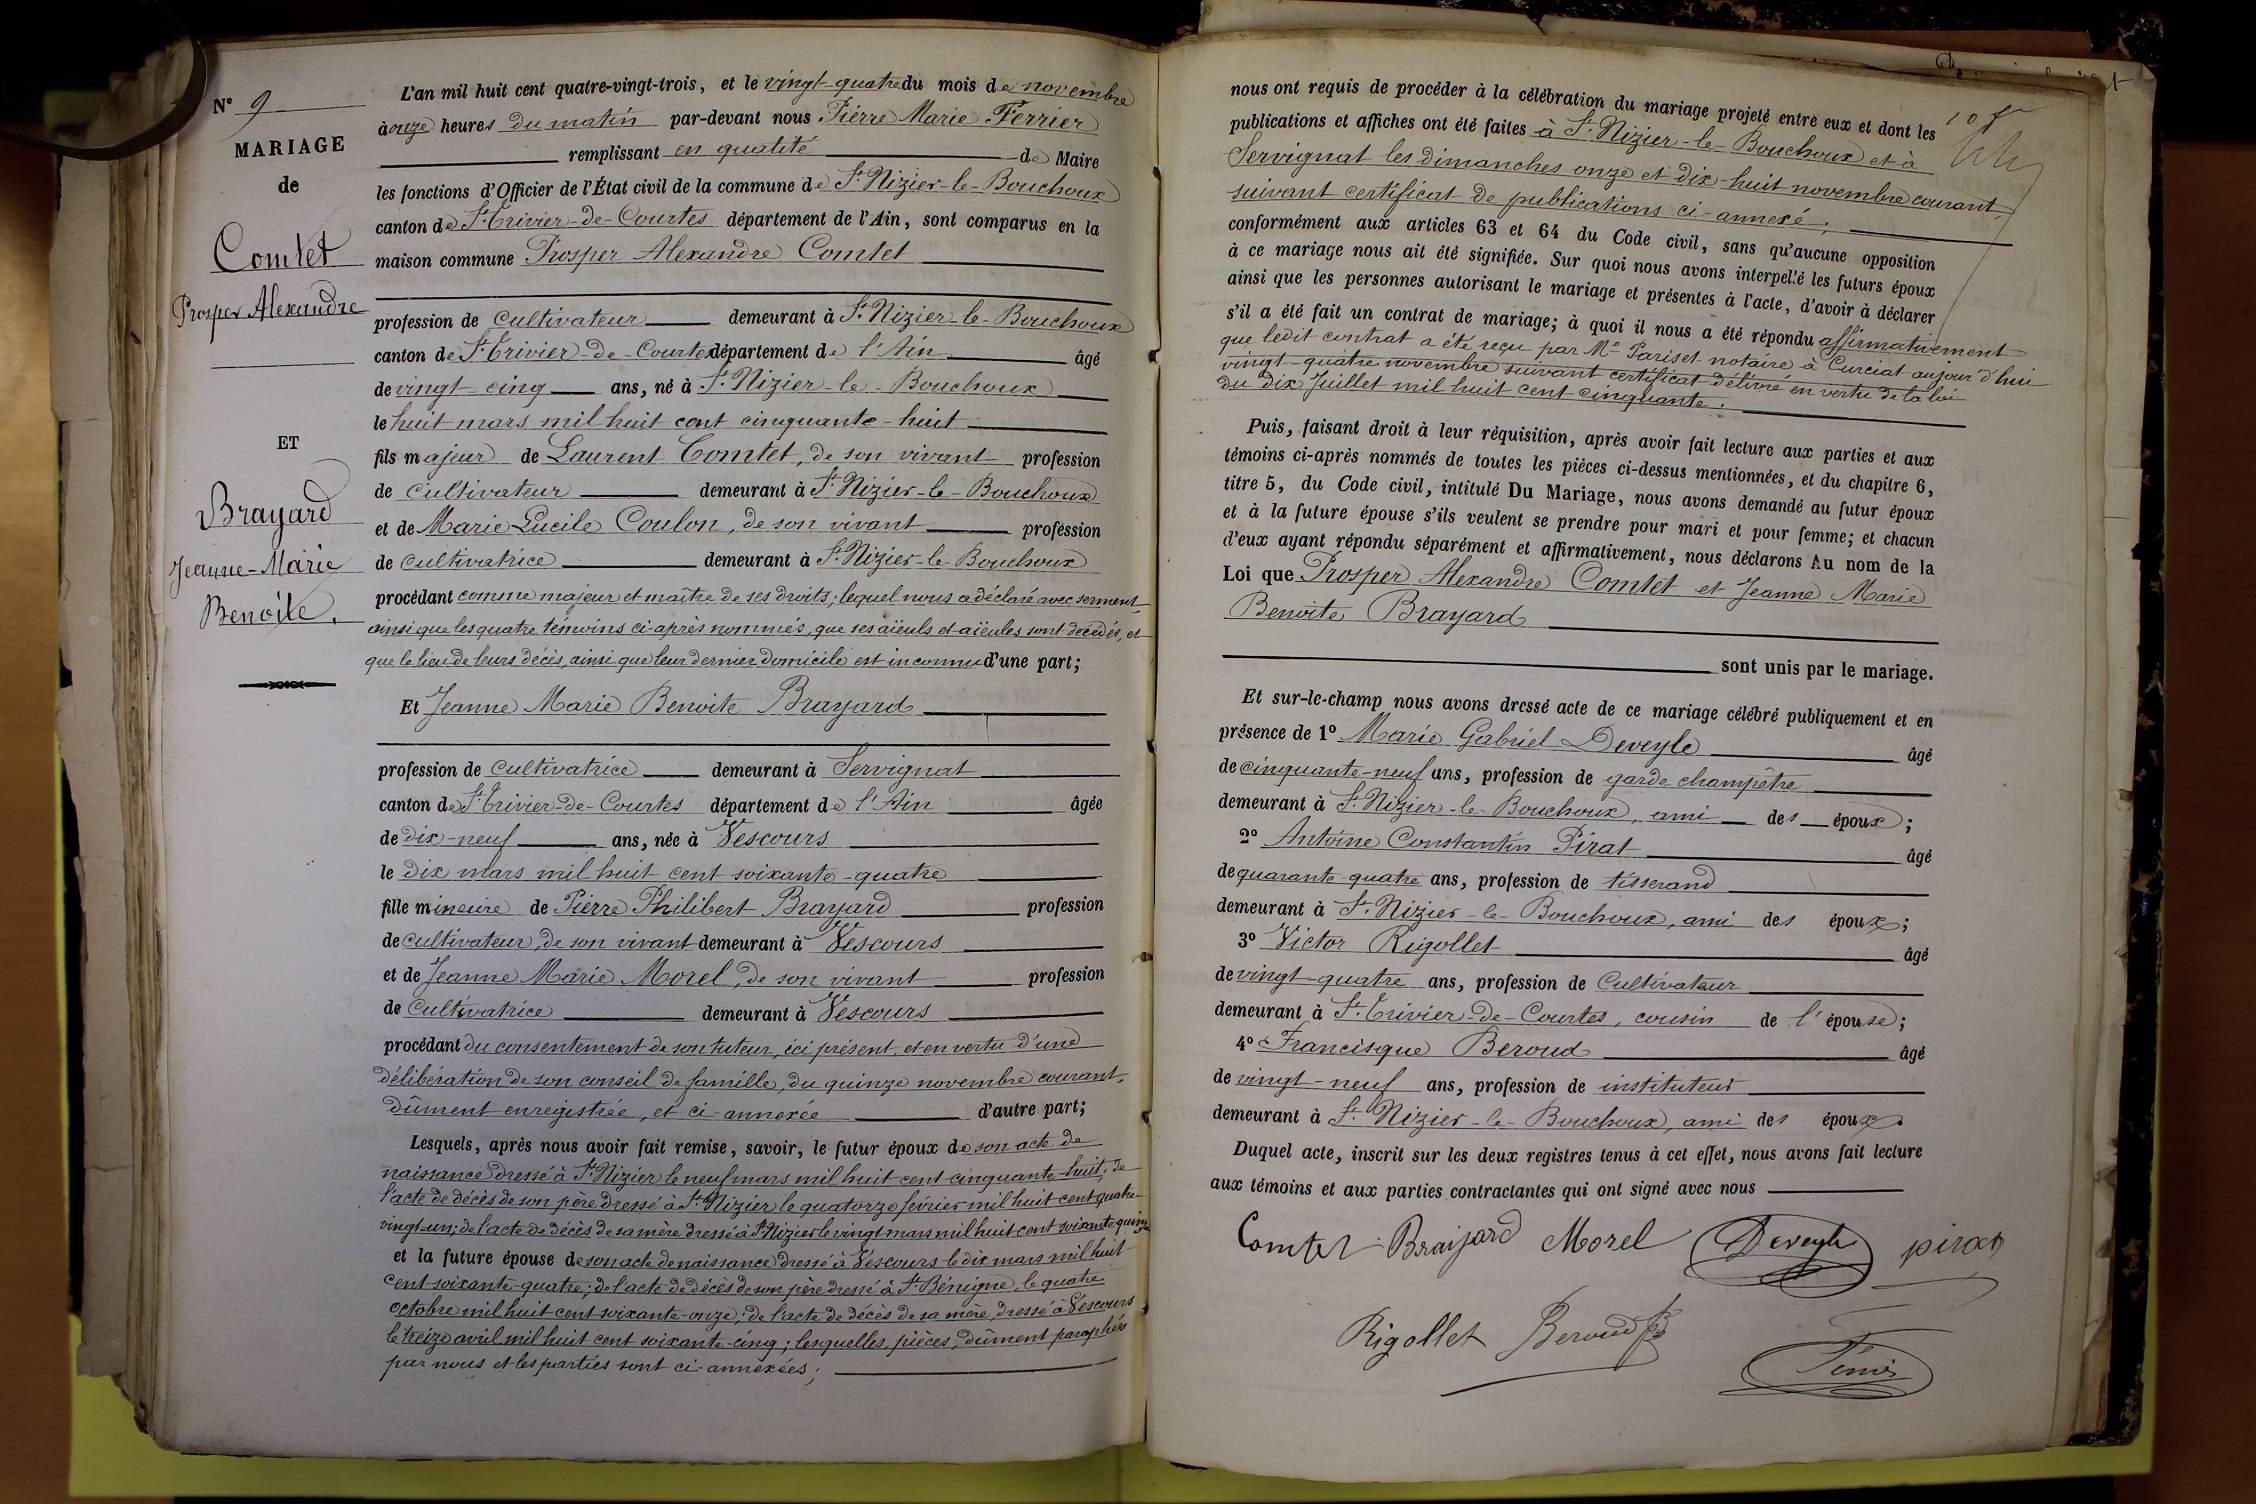 N° 9
MARIAGE
de
Comtet
Prosper Alexandre
ET
Brayard
Jeanne-Marie
Benoîte.
L'an mil huit cent quatre-vingt-trois, et le vingt-quatre du mois de novembre
à onze heures du matin par-devant nous Pierre Marie Ferrier
remplissant en qualité de Maire
les fonctions d'Officier de l'État civil de la commune de St. Nizier-le-Bouchoux
canton de St. Trivier-de-Courtes département de l'Ain, sont comparus en la
maison commune Prosper Alexandre Comtet
profession de cultivateur demeurant à St. Nizier-le-Bouchoux
canton de St. Trivier-de-Courtes département de l'Ain âgé
de vingt-cinq ans, né à St. Nizier-le-Bouchoux
le huit mars mil huit cent cinquante-huit
fils majeur de Laurent Comtet, de son vivant profession
de cultivateur demeurant à St. Nizier-le-Bouchoux
et de Marie Lucile Coulon, de son vivant profession
de cultivatrice demeurant à St. Nizier-le-Bouchoux
procédant comme majeur et maître de ses droits; lequel nous a déclaré avec serment
ainsi que les quatre témoins ci-après nommés, que ses aïeuls et aïeules sont décédés, et
que le lieu de leurs décès, ainsi que leur dernier domicile est inconnu d'une part;
Et Jeanne Marie Benoite Brayard
profession de cultivatrice demeurant à Servignat
canton de St. Trivier-de-Courtes département de l'Ain âgée
de dix-neuf ans, née à Vescours
le dix mars mil huit cent soixante-quatre
fille mineure de Pierre Philibert Brayard profession
de cultivateur, de son vivant demeurant à Vescours
et de Jeanne Marie Morel, de son vivant profession
de cultivatrice demeurant à Vescours
procédant du consentement de son tuteur, ici présent, et en vertu d'une
délibération de son conseil de famille, du quinze novembre courant,
dûment enregistrée, et ci-annexée d'autre part;
Lesquels, après nous avoir fait remise, savoir, le futur époux de son acte de
naissance dressé à St. Nizier le neuf mars mil huit cent cinquante-huit, de
l'acte de décès de son père dressé à St. Nizier le quatorze février mil huit cent quatre-
vingt-un; de l'acte de décès de sa mère dressé à St Nizier le vingt mars mil huit cent soixante quinze
et la future épouse de son acte de naissance dressé à Vescours le dix mars mil huit
cent soixante-quatre; de l'acte de décès de son père dressé à St. Bénigne, le quatre
octobre mil huit cent soixante-onze; de l'acte de décès de sa mère, dressé à Vescours
le treize avril mil huit cent soixante-cinq; lesquelles pièces, dûment paraphées
par nous et les parties sont ci-annexées;
nous ont requis de procéder à la célébration du mariage projeté entre eux et dont les
publications et affiches ont été faites à St. Nizier-le-Bouchoux et à
Servignat les dimanches onze et dix-huit novembre courant,
suivant certificat de publications ci-annexé;
conformément aux articles 63 et 64 du Code civil, sans qu'aucune opposition
à ce mariage nous ait été signifiée. Sur quoi nous avons interpellé les futurs époux
ainsi que les personnes autorisant le mariage et présentes à l'acte, d'avoir à déclarer
s'il a été fait un contrat de mariage; à quoi il nous a été répondu affirmativement
que ledit contrat a été reçu par Me Pariset notaire à Curciat aujourd'hui
vingt-quatre novembre suivant certificat délivré en vertu de la loi
du dix Juillet mil huit cent cinquante.
Puis, faisant droit à leur réquisition, après avoir fait lecture aux parties et aux
témoins ci-après nommés de toutes les pièces ci-dessus mentionnées, et du chapitre 6,
titre 5, du Code civil, intitulé Du Mariage, nous avons demandé au futur époux
et à la future épouse s'ils veulent se prendre pour mari et pour femme; et chacun
d'eux ayant répondu séparément et affirmativement, nous déclarons Au nom de la
Loi que Prosper Alexandre Comtet et Jeanne Marie
Benoite Brayard
sont unis par le mariage.
Et sur-le-champ nous avons dressé acte de ce mariage célébré publiquement et en
présence de 1° Marie Gabriel Deveyle âgé
de cinquante-neuf ans, profession de garde champêtre
demeurant à St. Nizier-le-Bouchoux, ami des époux;
2° Antoine Constantin Pirat âgé
de quarante-quatre ans, profession de tisserand
demeurant à St. Nizier-le-Bouchoux, ami des époux;
3° Victor Rigollet âgé
de vingt-quatre ans, profession de Cultivateur
demeurant à St. Trivier-de-Courtes, cousin de l'épouse;
4° Francisque Beroud âgé
de vingt-neuf ans, profession de instituteur
demeurant à St. Nizier-le-Bouchoux, ami des époux.
Duquel acte, inscrit sur les deux registres tenus à cet effet, nous avons fait lecture
aux témoins et aux parties contractantes qui ont signé avec nous
Comtet Braijard Morel Deveyle pirat
Rigollet Beroud